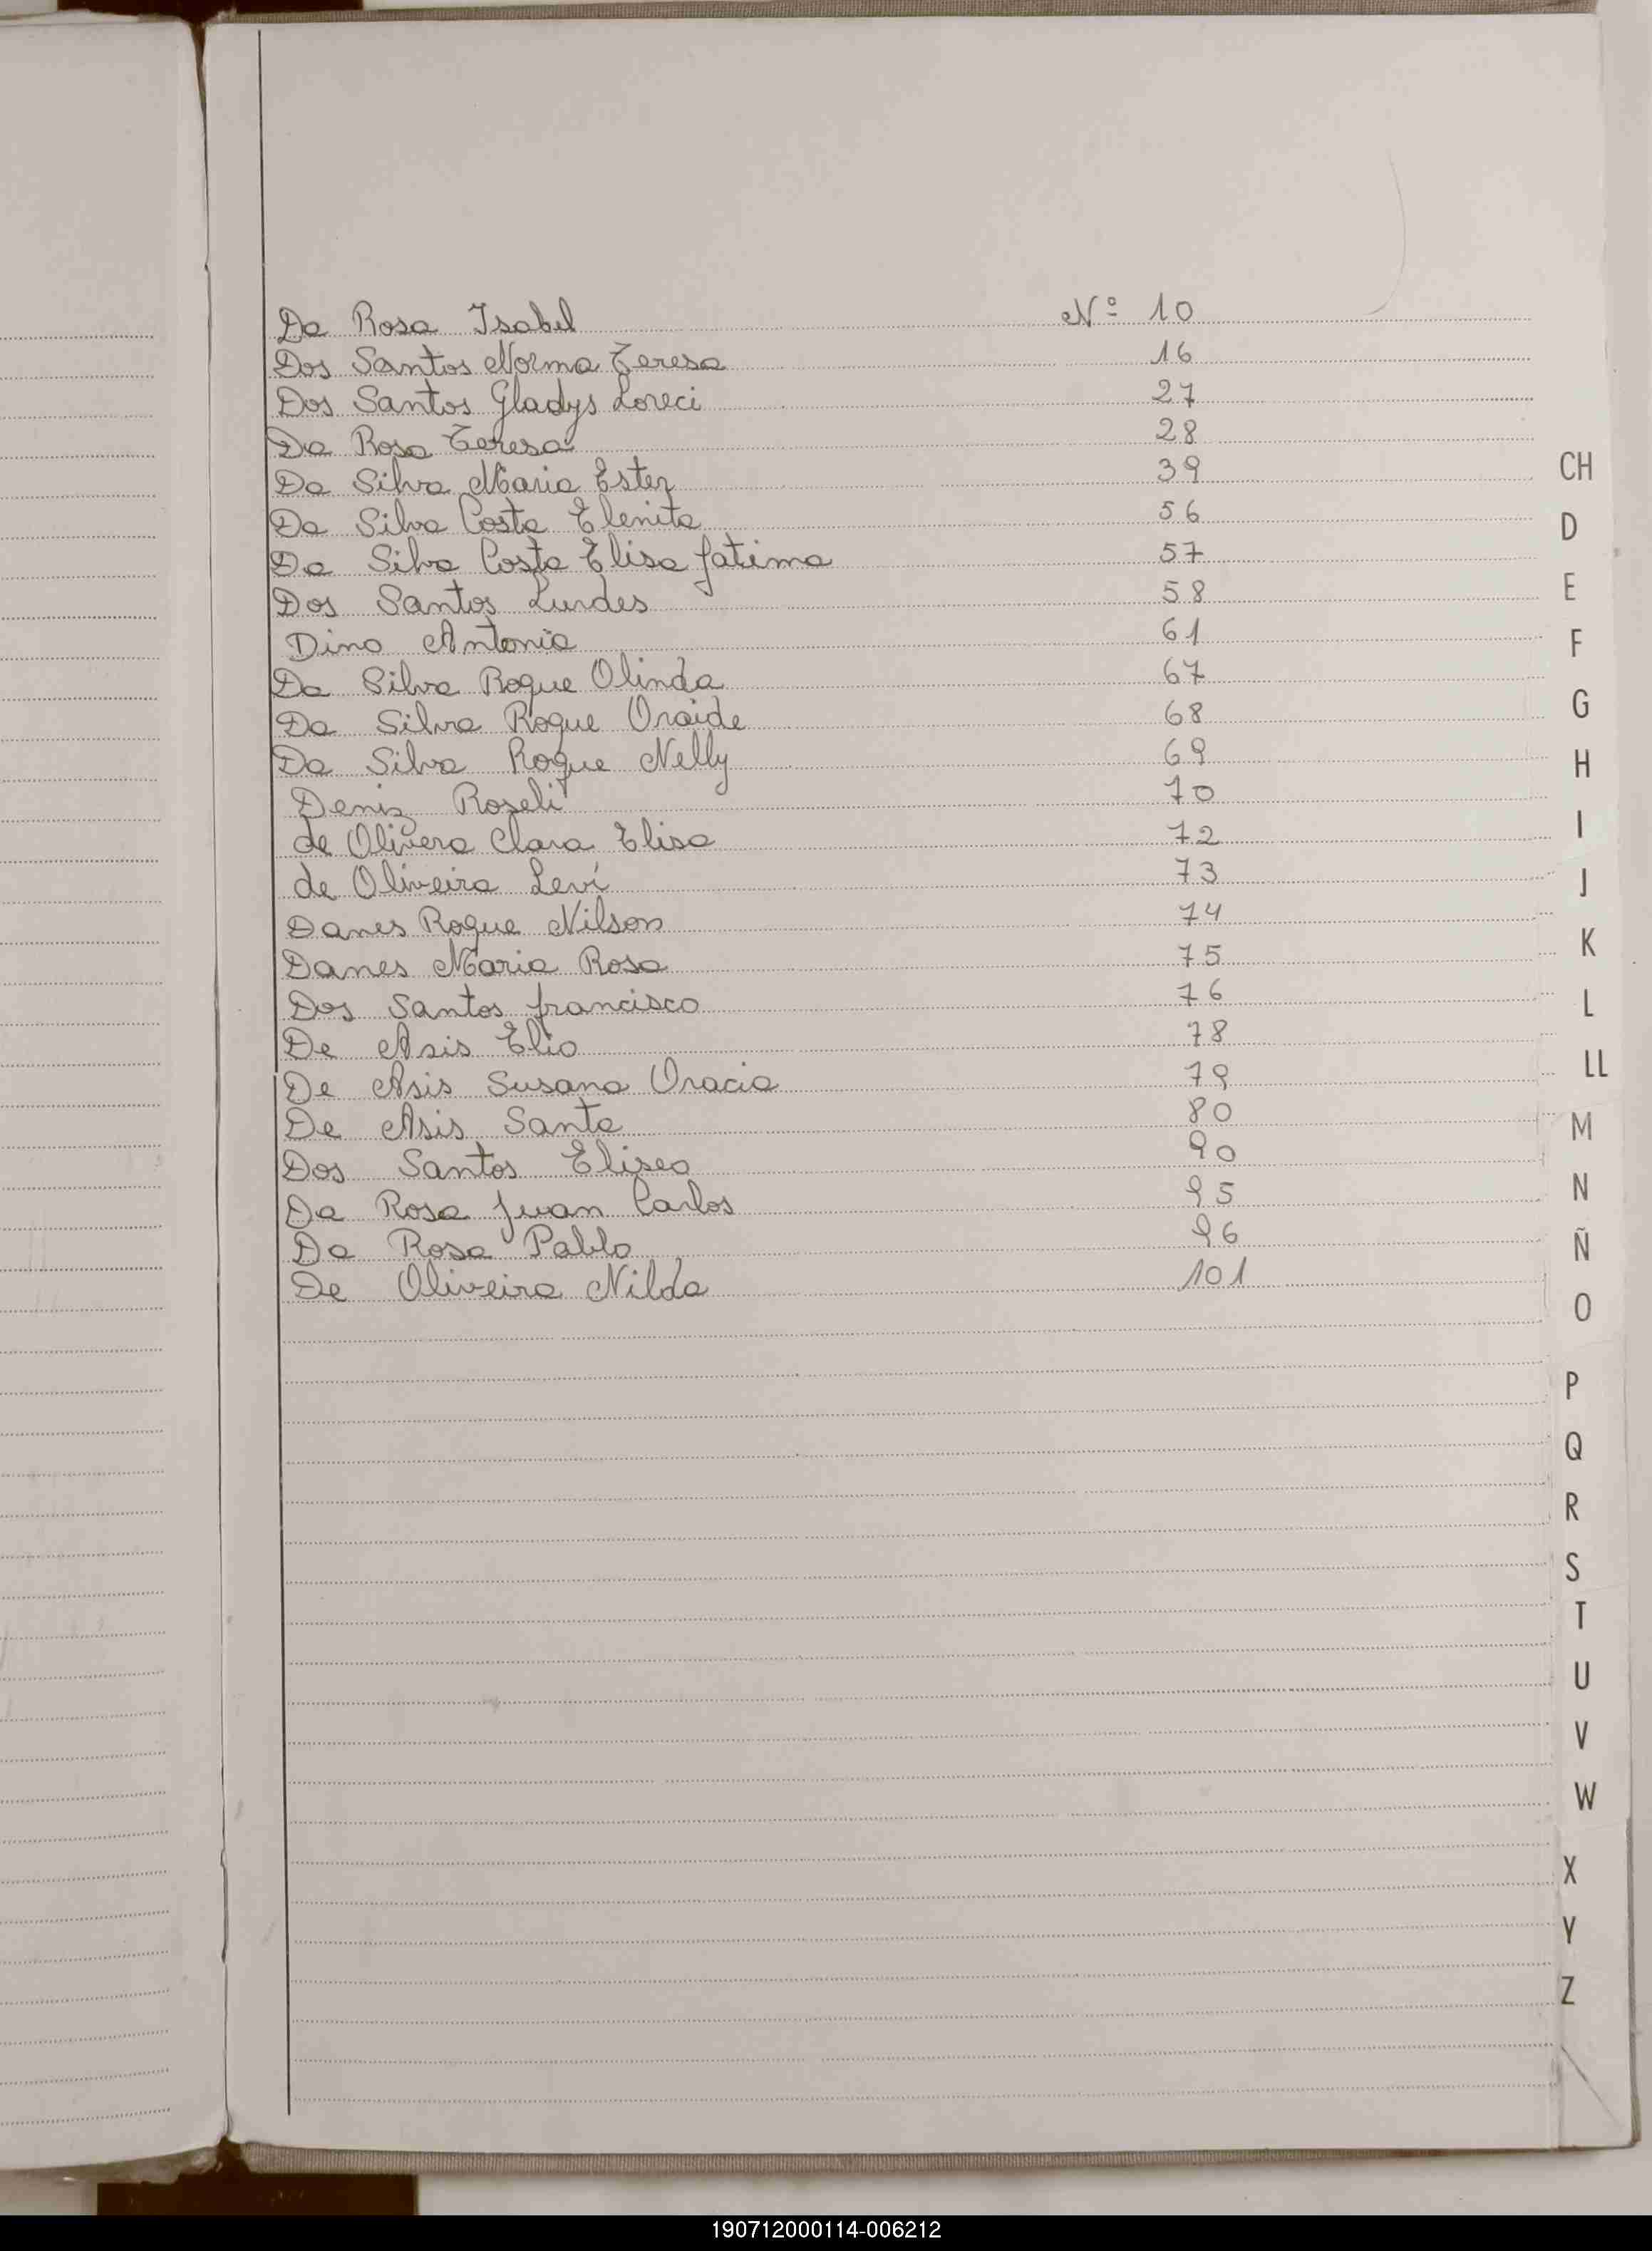 Da Rosa Isabel Nº 10
Dos Santos Norma Teresa 16
Dos Santos Gladys Loreci 27
Da Rosa Teresa 28
Da Silva Maria Ester 39
Da Silva Costa Elenita 56
Da Silva Costa Elisa fatima 57
Dos Santos Lurdes 58
Dino Antonia 61
Da Silva Roque Olinda 67
Da Silva Roque Oraide 68
Da Silva Roque Nelly 69
Deniz Roseli 70
de Olivera Clara Elisa 72
de Oliveira Leví 73
Danes Roque Nilson 74
Danes Maria Rosa 75
Dos Santos francisco 76
De Asis Elio 78
De Asis Susana Oracia 79
De Asis Santa 80
Dos Santos Eliseo 90
Da Rosa Juan Carlos 95
Da Rosa Pablo 96
De Oliveira Nilda 101
CH
D
E
F
G
H
I
J
K
L
LL
M
N
Ñ
O
P
Q
R
S
T
U
V
W
X
Y
Z
190712000114-006212